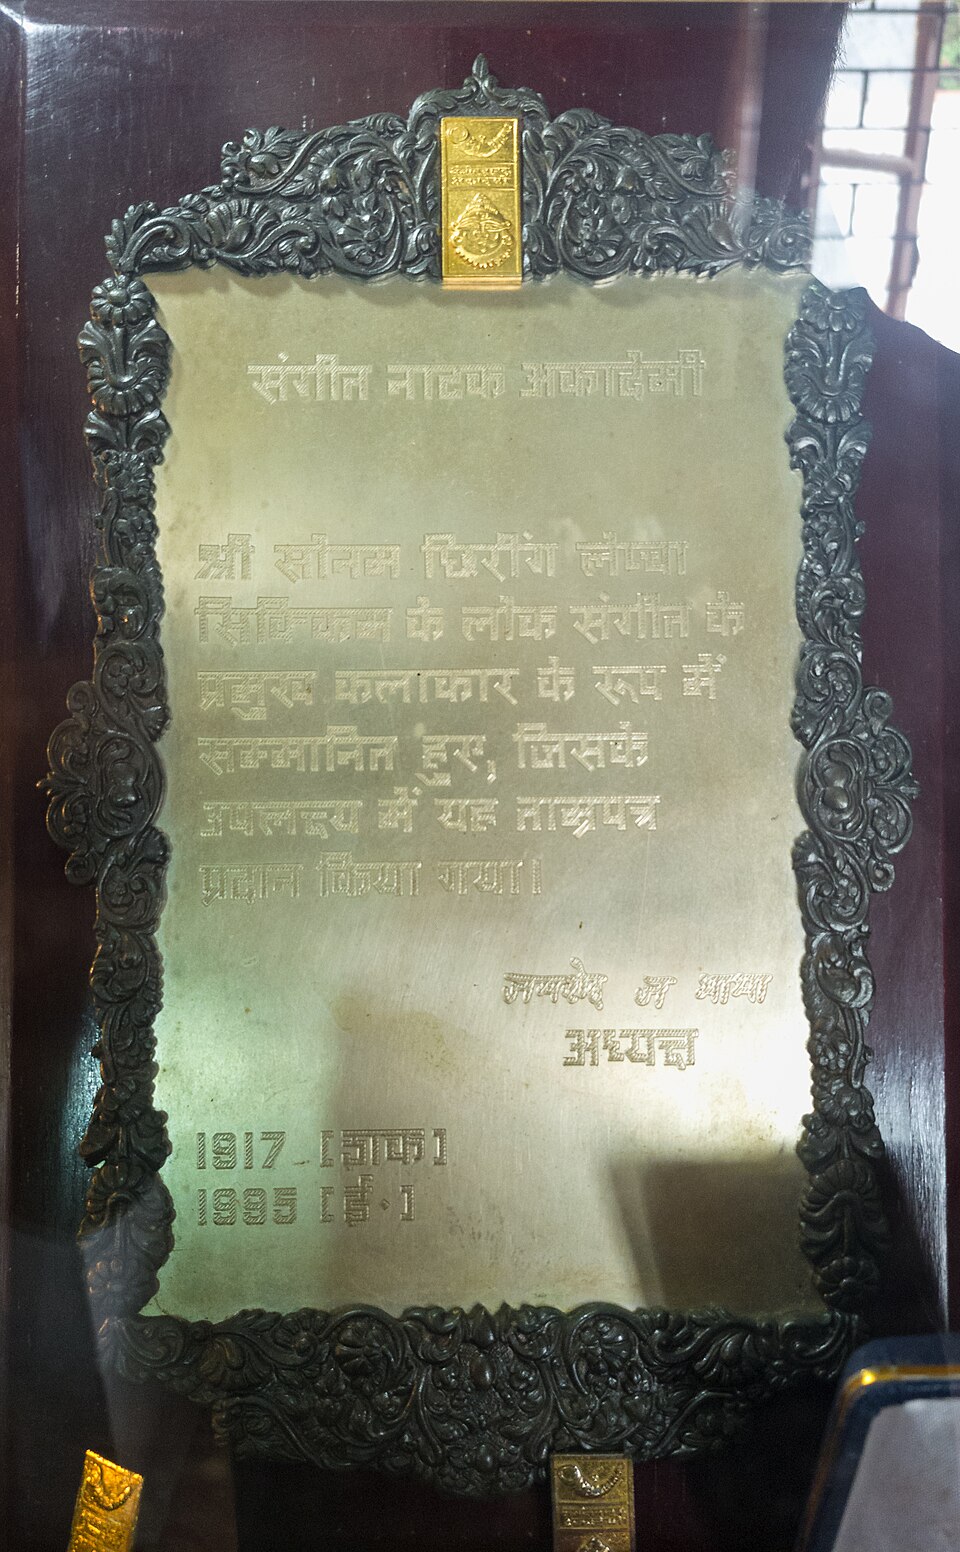 संगीत नाटक अकादेमी
श्री सोनम छिरींग लेप्चा
सिक्किम के लोक संगीत के
प्रमुख कलाकार के रूप में
सम्मानित हुए, जिसके
उपलक्ष्य में यह ताम्रपत्र
प्रदान किया गया।
अध्यक्ष
1917 [शक]
1995 [ई.]